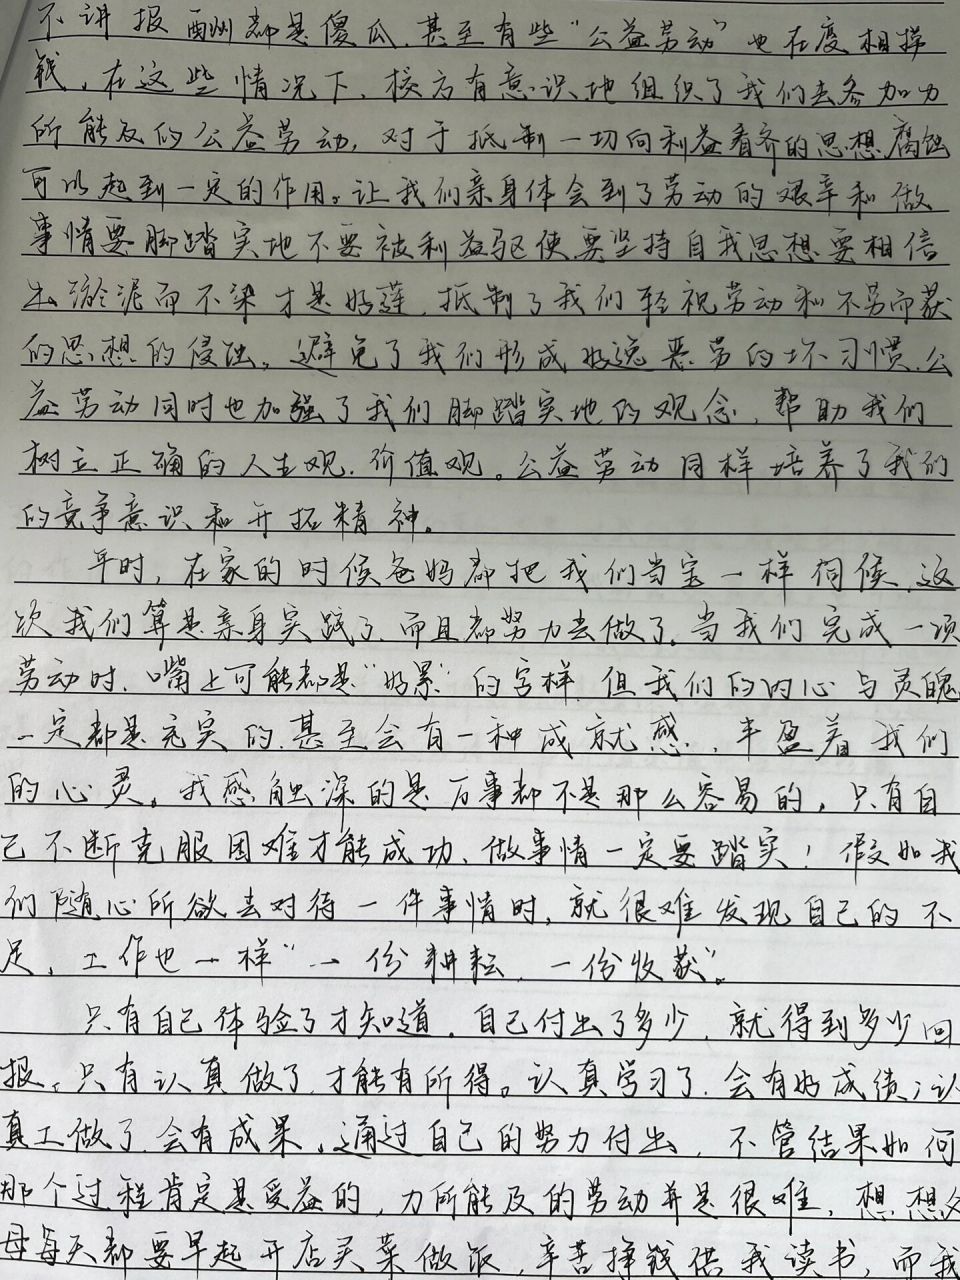 不讲报酬都是傻瓜，甚至有些“公益劳动”也在变相挣
钱，在这些情况下，校方有意识地组织了我们去参加力
所能及的公益劳动，对于抵制一切向利益看齐的思想腐蚀
可以起到一定的作用。让我们亲身体会到了劳动的艰辛和做
事情要脚踏实地不要被利益驱使要坚持自我思想要相信
出淤泥而不染才是好莲，抵制了我们轻视劳动和不劳而获
的思想的侵蚀。避免了我们形成好逸恶劳的坏习惯，公
益劳动同时也加强了我们脚踏实地的观念，帮助我们
树立正确的人生观、价值观。公益劳动同样培养了我们
的竞争意识和开拓精神。
平时，在家的时候爸妈都把我们当宝一样伺候，这
次我们算是亲身实践了，而且都努力去做了。当我们完成一项
劳动时，嘴上可能都是“好累”的字样，但我们的内心与灵魄
一定都是充实的，甚至会有一种成就感，丰盈着我们
的心灵。我感触深的是万事都不是那么容易的，只有自
己不断克服困难才能成功、做事情一定要踏实！假如我
们随心所欲去对待一件事情时，就很难发现自己的不
足，工作也一样“一份耕耘，一份收获”。
只有自己体验了才知道，自己付出了多少，就得到多少回
报。只有认真做了，才能有所得。认真学习了，会有好成绩；认
真工做了，会有成果，通过自己的努力付出，不管结果如何
那个过程肯定是受益的，力所能及的劳动并是很难，想想父
母每天都要早起开店买菜做饭，辛苦挣钱供我读书，而我